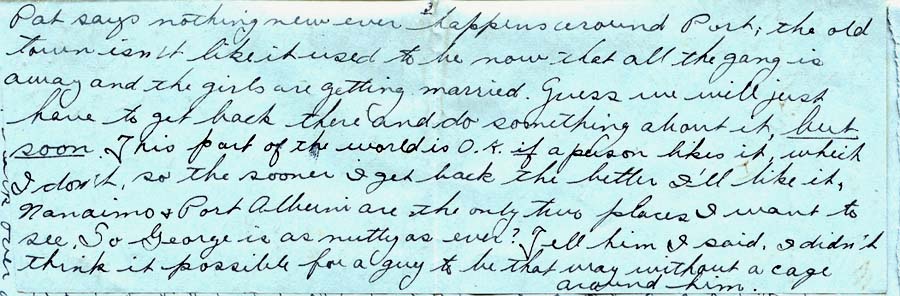 3
Pat says nothing new ever happens around Port; the old
town isn't like it used to be now that all the gang is
away and the girls are getting married. Guess we will just
have to get back there and do something about it, but
soon. This part of the world is O.K. if a person likes it, which
I don't, so the sooner I get back the better I'll like it,
Nanaimo & Port Alberni are the only two places I want to
see. So George is as nutty as ever? Tell him I said, I didn't
think it possible for a guy to be that way without a cage
around him.
over